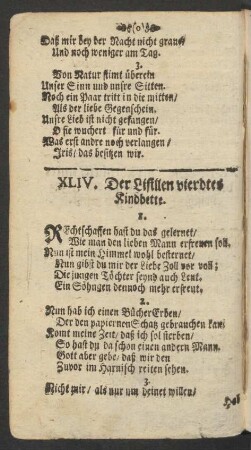 Daß mir bey der Nacht nicht graue/
Und noch weniger am Tag.
3.
Von Natur stimt überein
Unser Sinn und unsre Sitten.
Noch ein Paar tritt in die mitten/
Als der liebe Gegenschein.
Unsre Lieb ist nicht gefangen/
O sie wuchert für und für.
Was erst andre noch verlangen/
Iris/ das besitzen wir.
XLIV. Der Lisilien vierdtes
Kindbette.
1.
REchtschaffen hast du das gelernet/
Wie man den lieben Mann erfreuen soll.
Nun ist mein Himmel wohl besternet/
Nun gibst du mir der Liebe Zoll vor voll;
Die jungen Töchter seynd auch Leut.
Ein Söhngen dennoch mehr erfreut.
2.
Nun hab ich einen BücherErben/
Der den papiernen Schatz gebrauchen kan.
Komt meine Zeit/ daß ich sol sterben/
So hast du da schon einen andern Mann.
Gott aber gebe/ daß wir den
Zuvor im Harnisch reiten sehen.
3.
Nicht mir/ als nur um deinet willen/
Hab